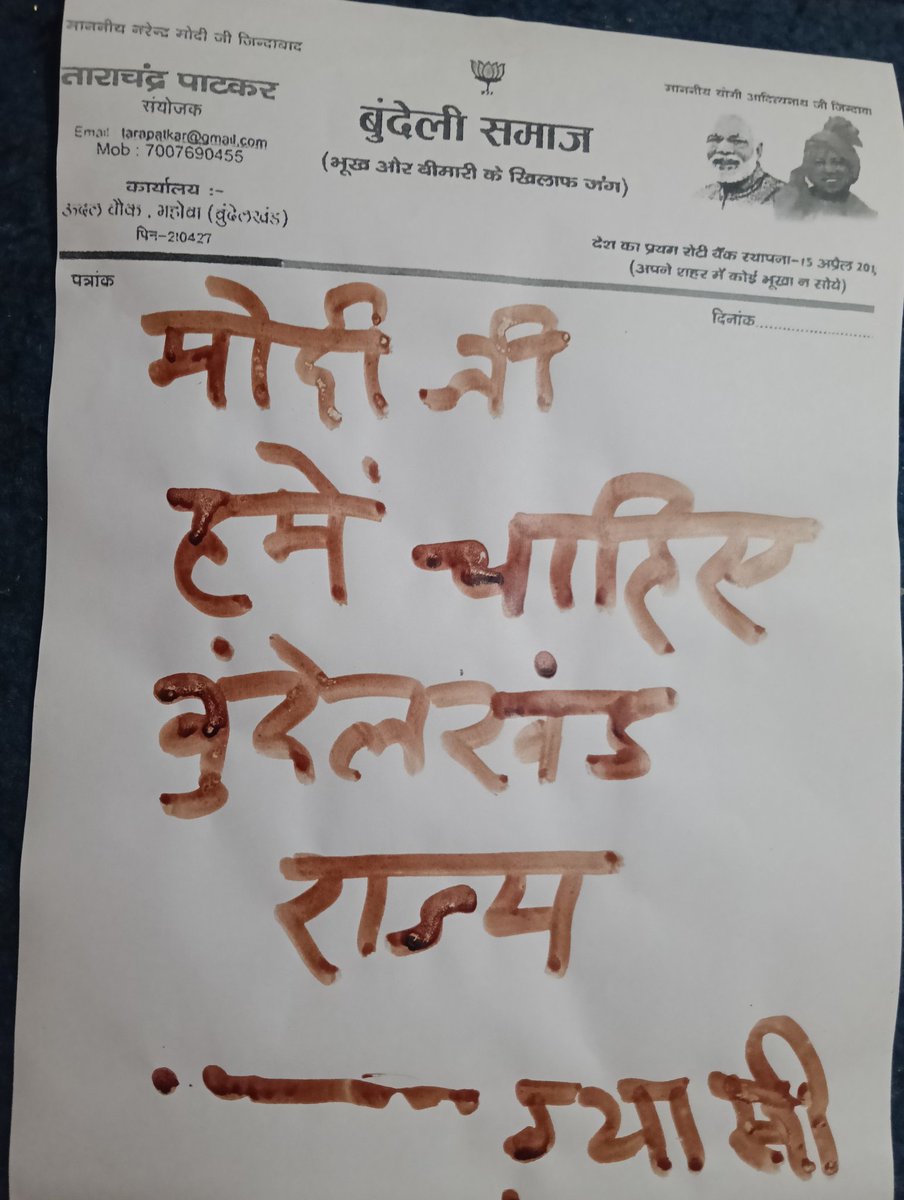 माननीय नरेन्द्र मोदी जी जिन्दाबाद
ताराचंद्र पाटकर
संयोजक
Email tarapatkar@gmail.com
Mob : 7007690455
कार्यालय :-
ऊदल चौक, महोवा (बुंदेलखंड)
पिन-210427
बुंदेली समाज
(भूख और बीमारी के खिलाफ जंग)
माननीय योगी आदित्यनाथ जी जिन्दावा
देश का प्रथम रोटी बैंक स्थापना-15 अप्रैल 201
(अपने शहर में कोई भूखा न सोये)
पत्रांक
दिनांक..............................
मोदी जी
हमें चाहिए
बुंदेलखंड
राज्य